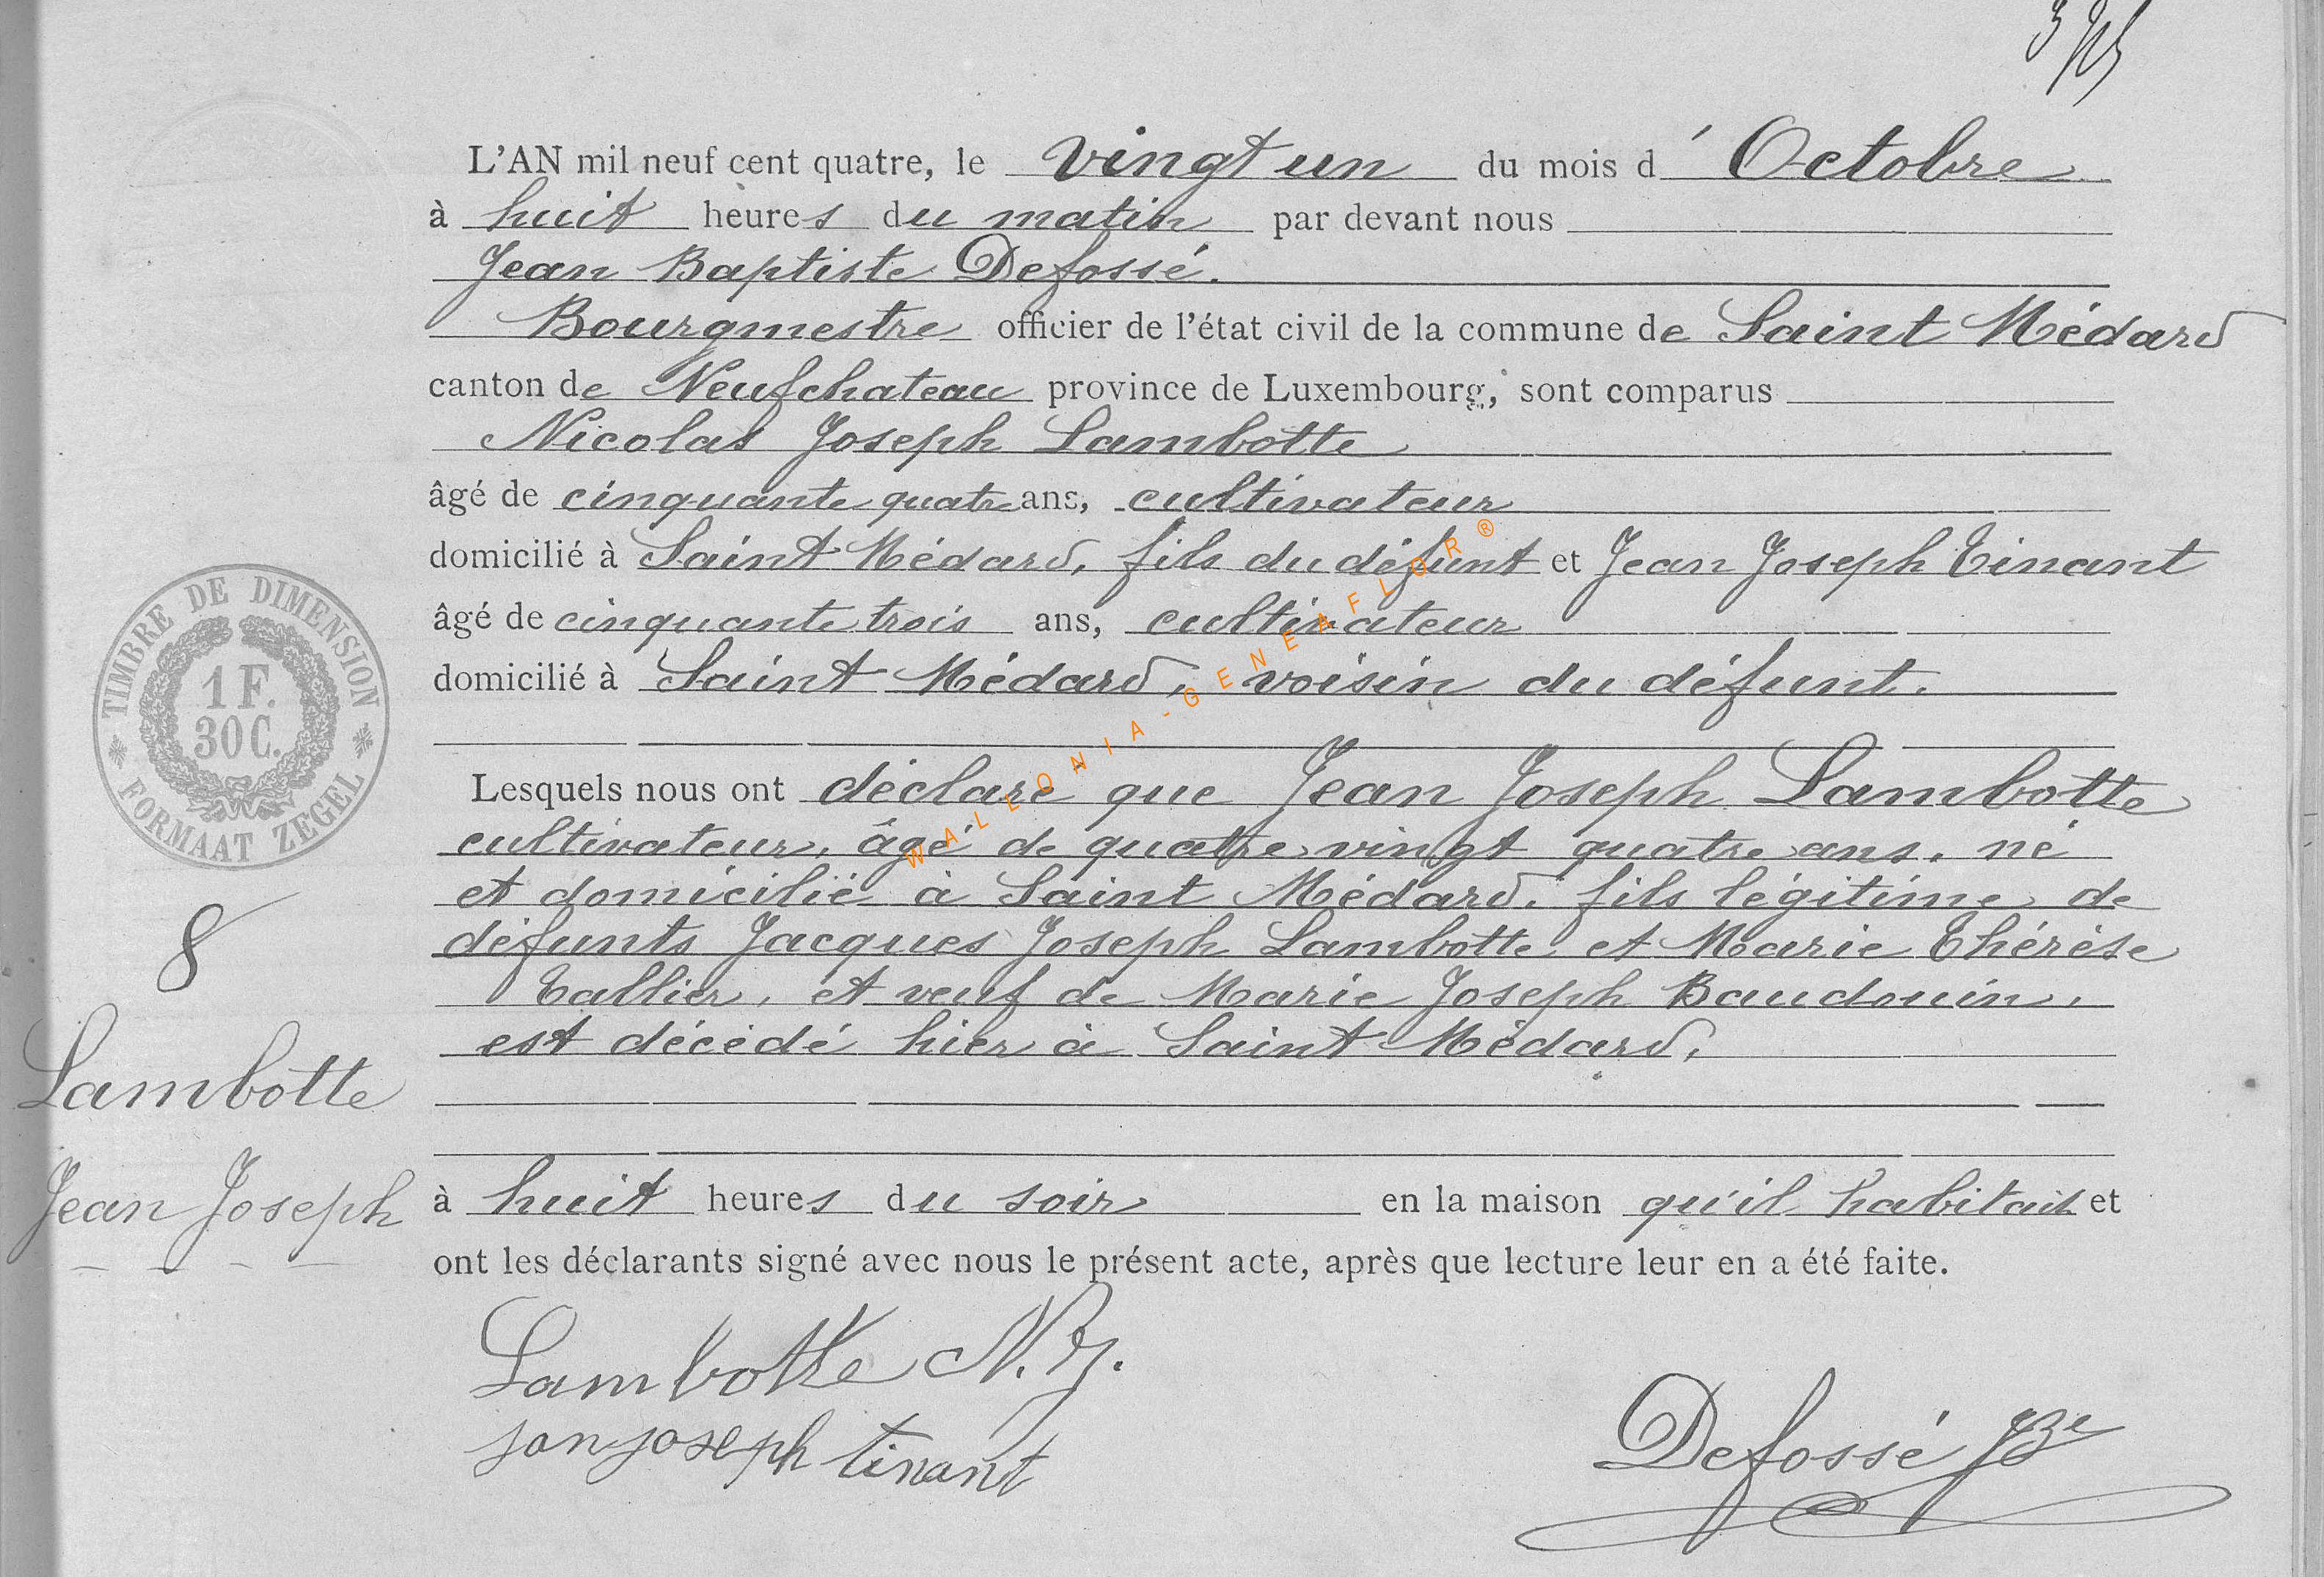 L'AN mil neuf cent quatre, le vingt un du mois d'Octobre
à huit heures du matin par devant nous
Jean Baptiste Defossé.
Bourgmestre officier de l'état civil de la commune de Saint Médard
canton de Neufchateau province de Luxembourg, sont comparus
Nicolas Joseph Lambotte
âgé de cinquante quatre ans, cultivateur
domicilié à Saint Médard, fils du défunt et Jean Joseph Tinant
âgé de cinquante trois ans, cultivateur
domicilié à Saint Médard, voisin du défunt.
WALLONIA-GENEAFLOR®
TIMBRE DE DIMENSION
1 F.
30 C.
FORMAAT ZEGEL
Lesquels nous ont déclaré que Jean Joseph Lambotte
cultivateur, âgé de quatre vingt quatre ans, né
et domicilié à Saint Médard, fils légitime de
défunts Jacques Joseph Lambotte et Marie Thérèse
Tallier, et veuf de Marie Joseph Baudouin,
est décédé hier à Saint Médard,
8
Lambotte
Jean Joseph
à huit heures du soir en la maison qu'il habitait et
ont les déclarants signé avec nous le présent acte, après que lecture leur en a été faite.
Lambotte N. J.
jan joseph tinant
Defossé JBe